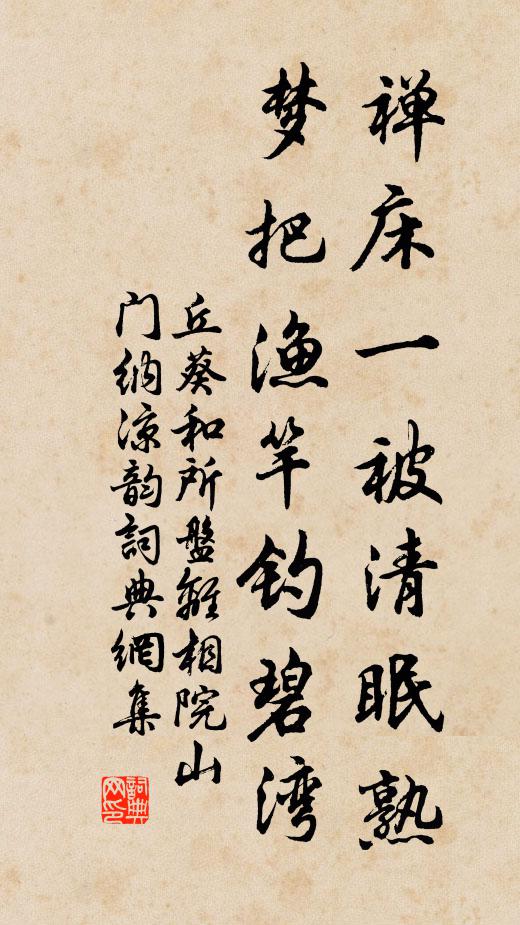 禅床一被清眠熟
梦把渔竿钓碧湾
丘葵和所盘離相院山
门纳凉韵詞典網集
詞典网印